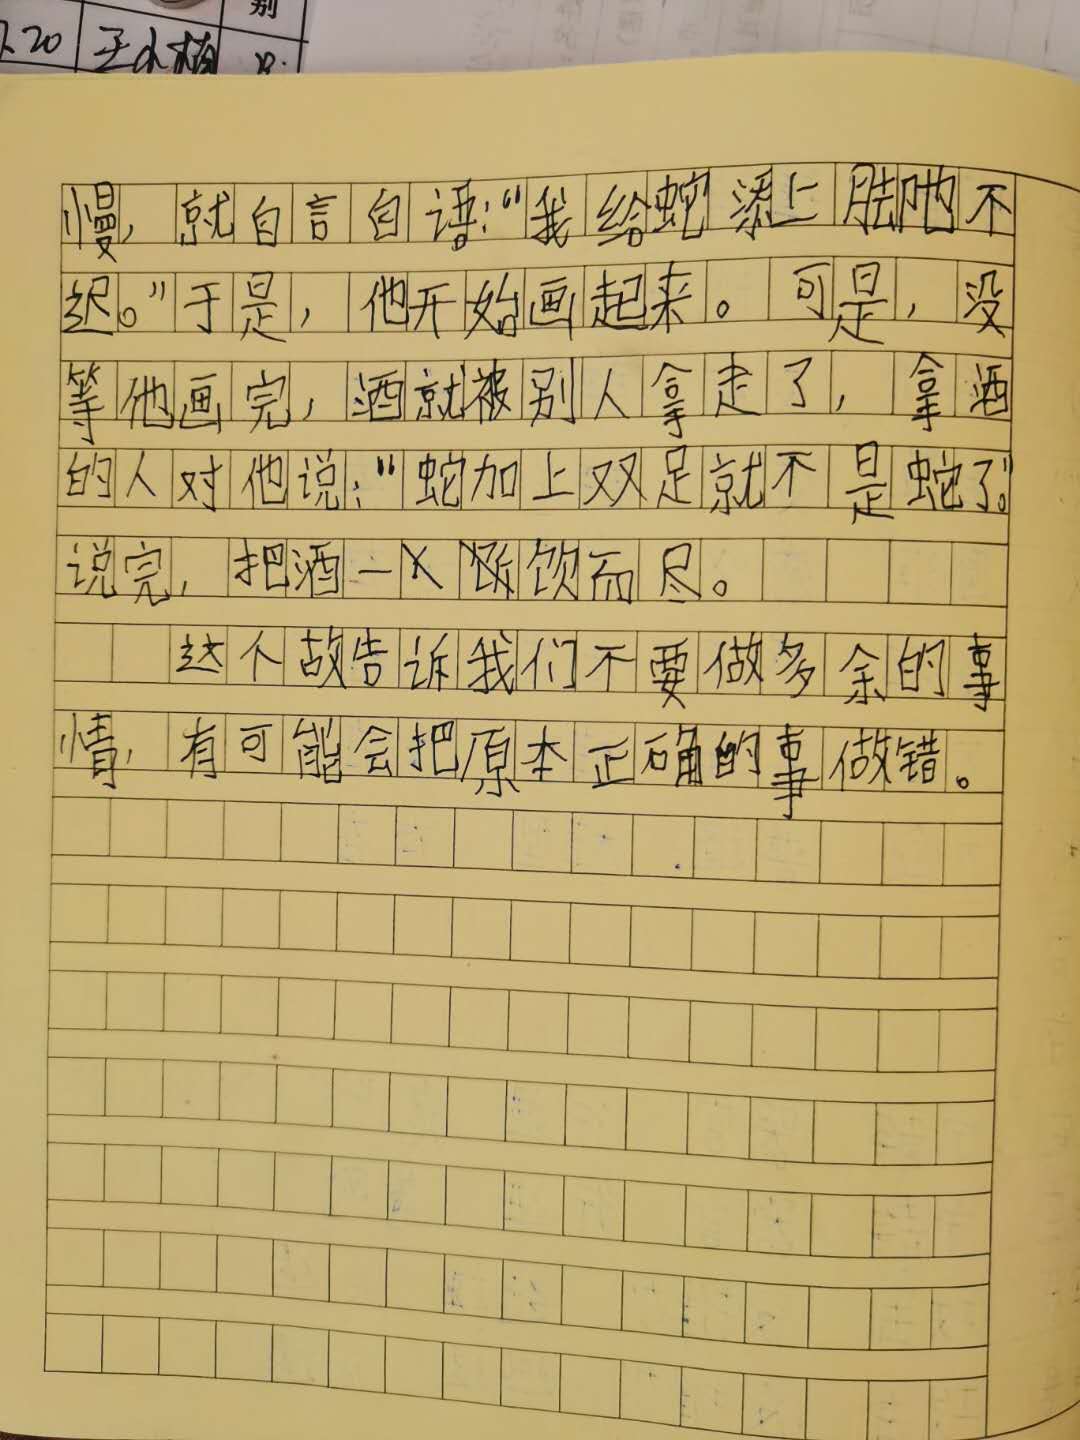 别
2.20 王小梅
慢，就自言自语：“我给蛇添上胠吔不
迟。”于是，他开始画起来。可是，没
等他画完，酒就被别人拿走了，拿酒
的人对他说：“蛇加上双足就不是蛇了。”
说完，把酒一饮而尽。
这个故告诉我们不要做多余的事
情，有可能会把原本正确的事做错。